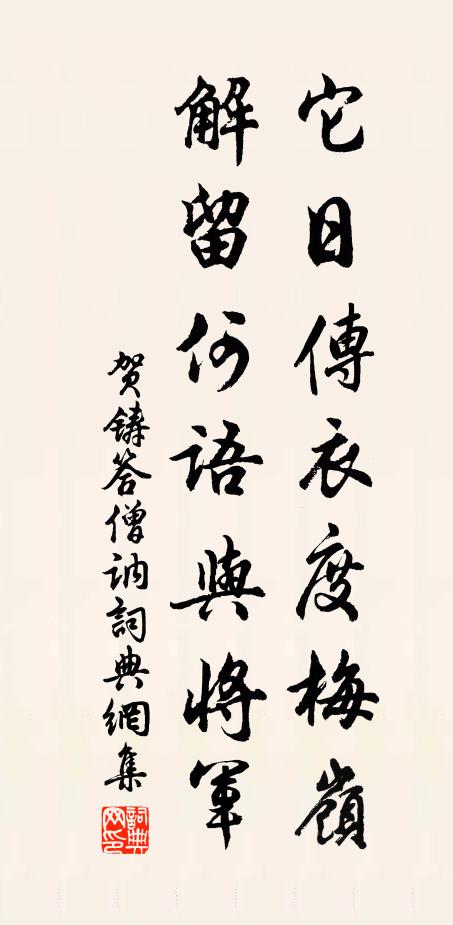 它日傳衣度梅嶺
解留何語與將軍
贺鑄答僧訥詞典網集
詞典网印